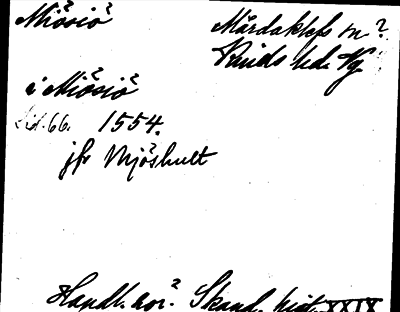 Miösiö Mårdaklefs sn?
Kinds hd. Vg
i Miösiö
sid. 66. 1554.
jfr Mjöshult
Handl. rör. Skand. hist. XXIX